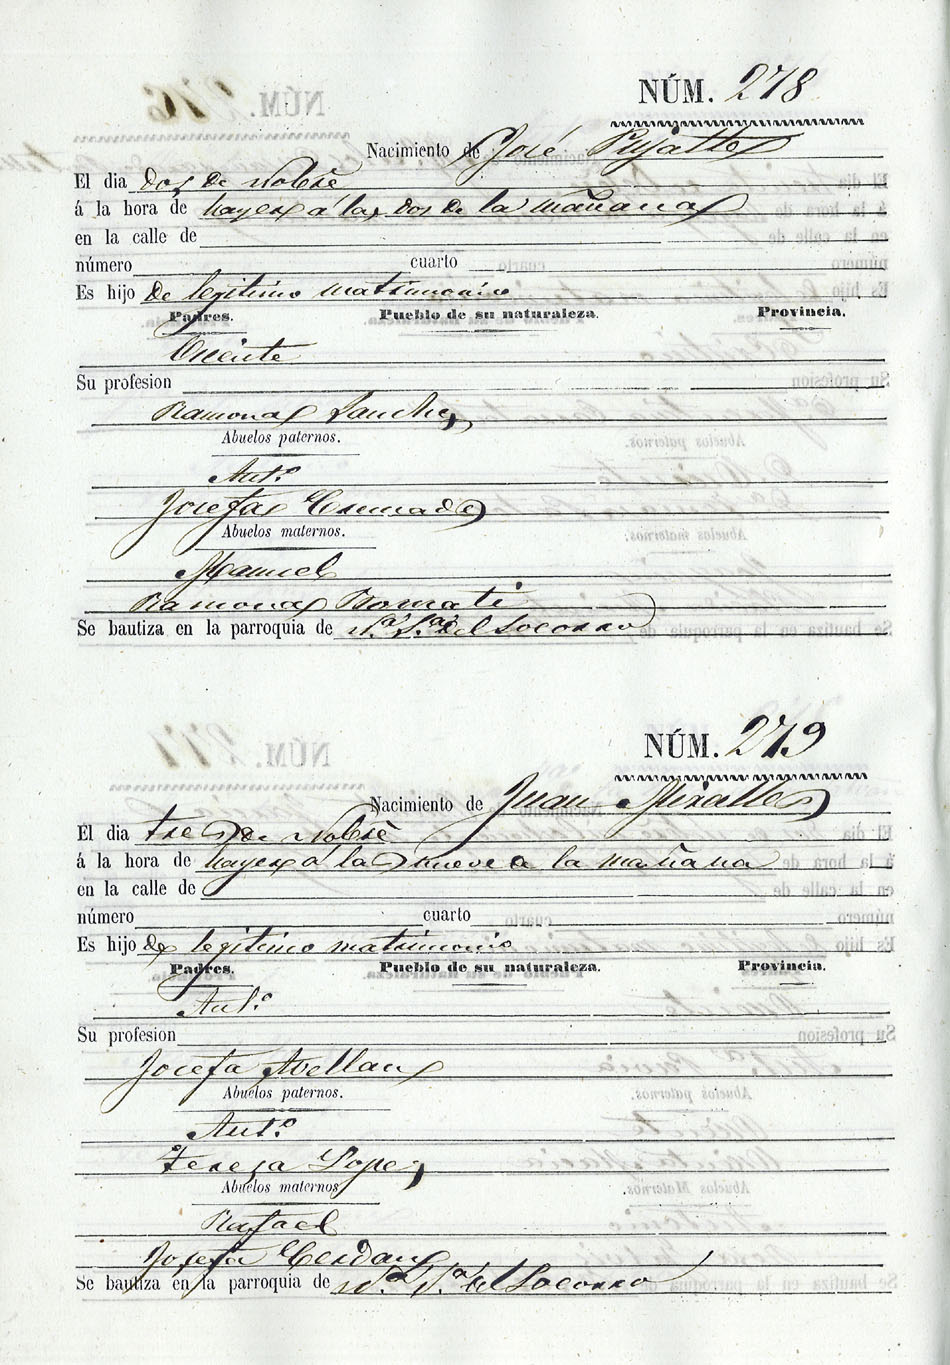 NÚM. 278
Nacimiento de José Pujalte
El dia dos de Nobre
á la hora de hayer a las dos de la mañana
en la calle de
número cuarto
Es hijo de legitimo matrimonio
Padres. Pueblo de su naturaleza. Provincia.
Vicente
Su profesion
Ramona Sanchez
Abuelos paternos.
Ant.º
Josefa Cremades
Abuelos maternos.
Manuel
Ramona
Se bautiza en la parroquia de N.ª S.ª del Socorro
NÚM. 279
Nacimiento de Juan Miralles
El dia tres de Nobre
á la hora de hayer a las nueve a la mañana
en la calle de
número cuarto
Es hijo de legitimo matrimonio
Padres. Pueblo de su naturaleza. Provincia.
Ant.º
Su profesion
Josefa Avellan
Abuelos paternos.
Ant.º
Teresa Lopez
Abuelos maternos
Rafael
Josefa Cerdan
Se bautiza en la parroquia de N.ª S.ª del Socorro